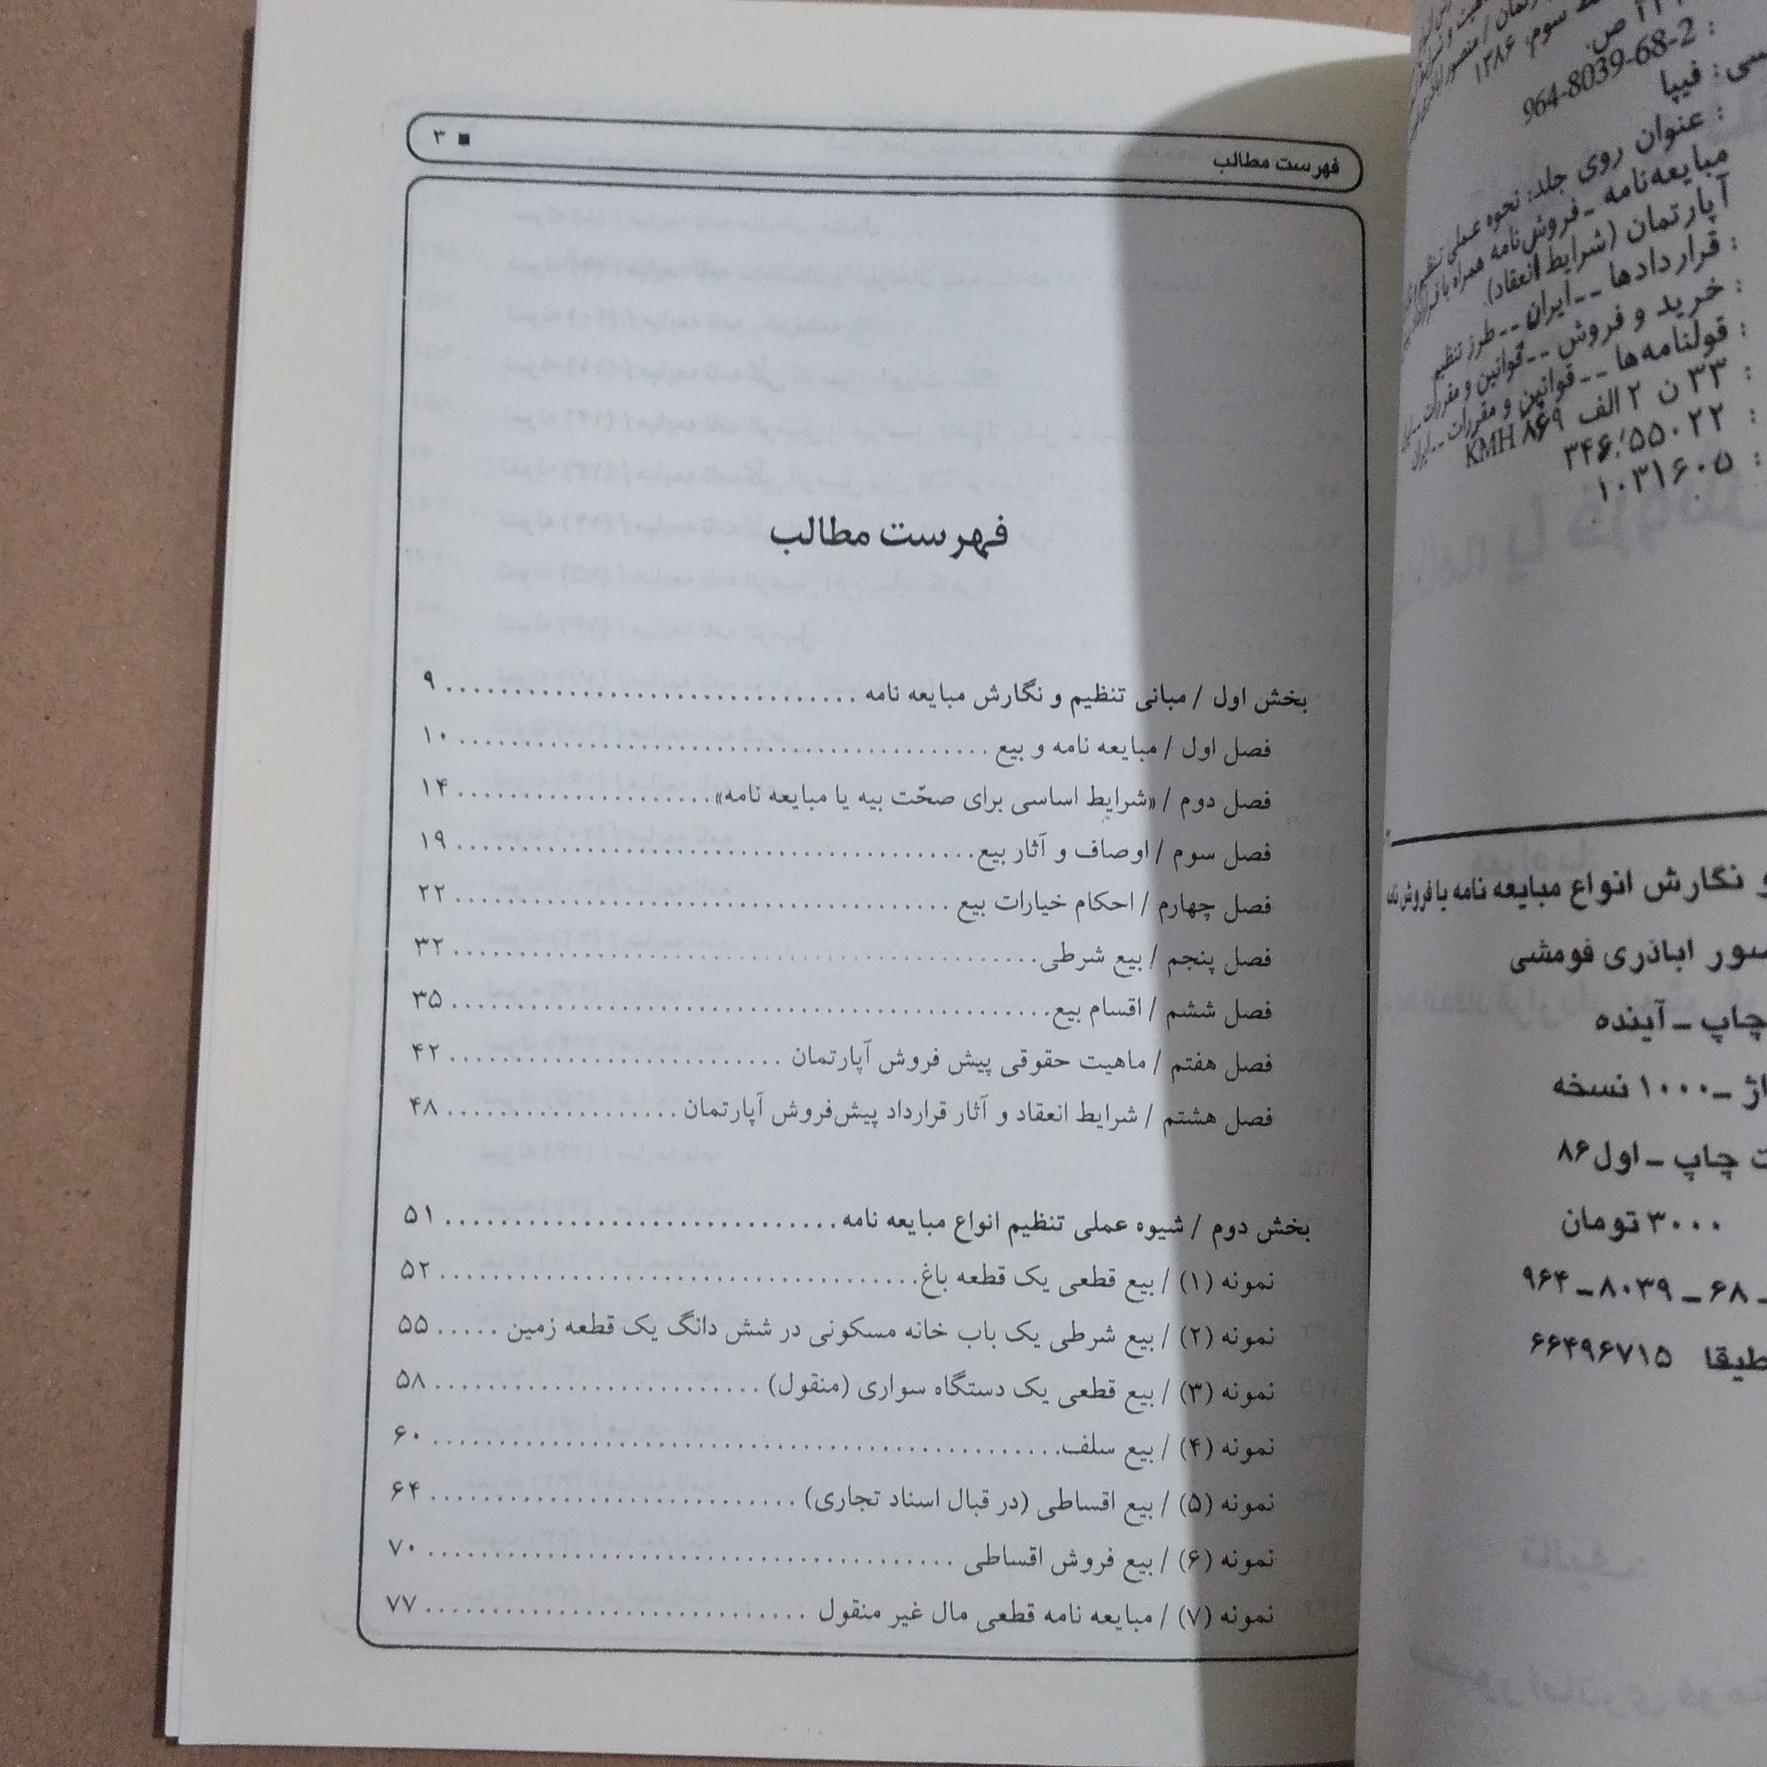 سوم، ۱۳۸۶
ص.
964-8039-68-2 :
: فیپا
: عنوان روی جلد: نحوه عملی تنظیم
مبایعه‌نامه ـ فروش‌نامه همراه با
آپارتمان (شرایط انعقاد).
: قراردادها -- ایران -- طرز تنظیم
: خرید و فروش -- قوانین و مقررات --
: قولنامه‌ها -- قوانین و مقررات -- ایران
: KMH ۸۶۹ ‏۳۳ ن ۲ الف
: ۳۴۶/۵۵۰۲۲
: ۱۰۳۱۶۰۵
و نگارش انواع مبایعه نامه یا فروش
اباذری فومشی
چاپ ـ آینده
ـ ۱۰۰۰ نسخه
چاپ ـ اول ۸۶
۳۰۰۰ تومان
۹۶۴ ـ ۸۰۳۹ ـ ۶۸ ـ
۶۶۴۹۶۷۱۵
فهرست مطالب ■ ۳
فهرست مطالب
بخش اول / مبانی تنظیم و نگارش مبایعه نامه ............................... ۹
فصل اول / مبایعه نامه و بیع ......................................... ۱۰
فصل دوم / «شرایط اساسی برای صحّت بیه یا مبایعه نامه» .................... ۱۴
فصل سوم / اوصاف و آثار بیع ........................................ ۱۹
فصل چهارم / احکام خیارات بیع ...................................... ۲۲
فصل پنجم / بیع شرطی ............................................. ۳۲
فصل ششم / اقسام بیع .............................................. ۳۵
فصل هفتم / ماهیت حقوقی پیش فروش آپارتمان ......................... ۴۲
فصل هشتم / شرایط انعقاد و آثار قرارداد پیش‌فروش آپارتمان .................. ۴۸
بخش دوم / شیوه عملی تنظیم انواع مبایعه نامه .............................. ۵۱
نمونه (۱) / بیع قطعی یک قطعه باغ ..................................... ۵۲
نمونه (۲) / بیع شرطی یک باب خانه مسکونی در شش دانگ یک قطعه زمین ..... ۵۵
نمونه (۳) / بیع قطعی یک دستگاه سواری (منقول) ......................... ۵۸
نمونه (۴) / بیع سلف ................................................ ۶۰
نمونه (۵) / بیع اقساطی (در قبال اسناد تجاری) ............................ ۶۴
نمونه (۶) / بیع فروش اقساطی ........................................ ۷۰
نمونه (۷) / مبایعه نامه قطعی مال غیر منقول ............................. ۷۷